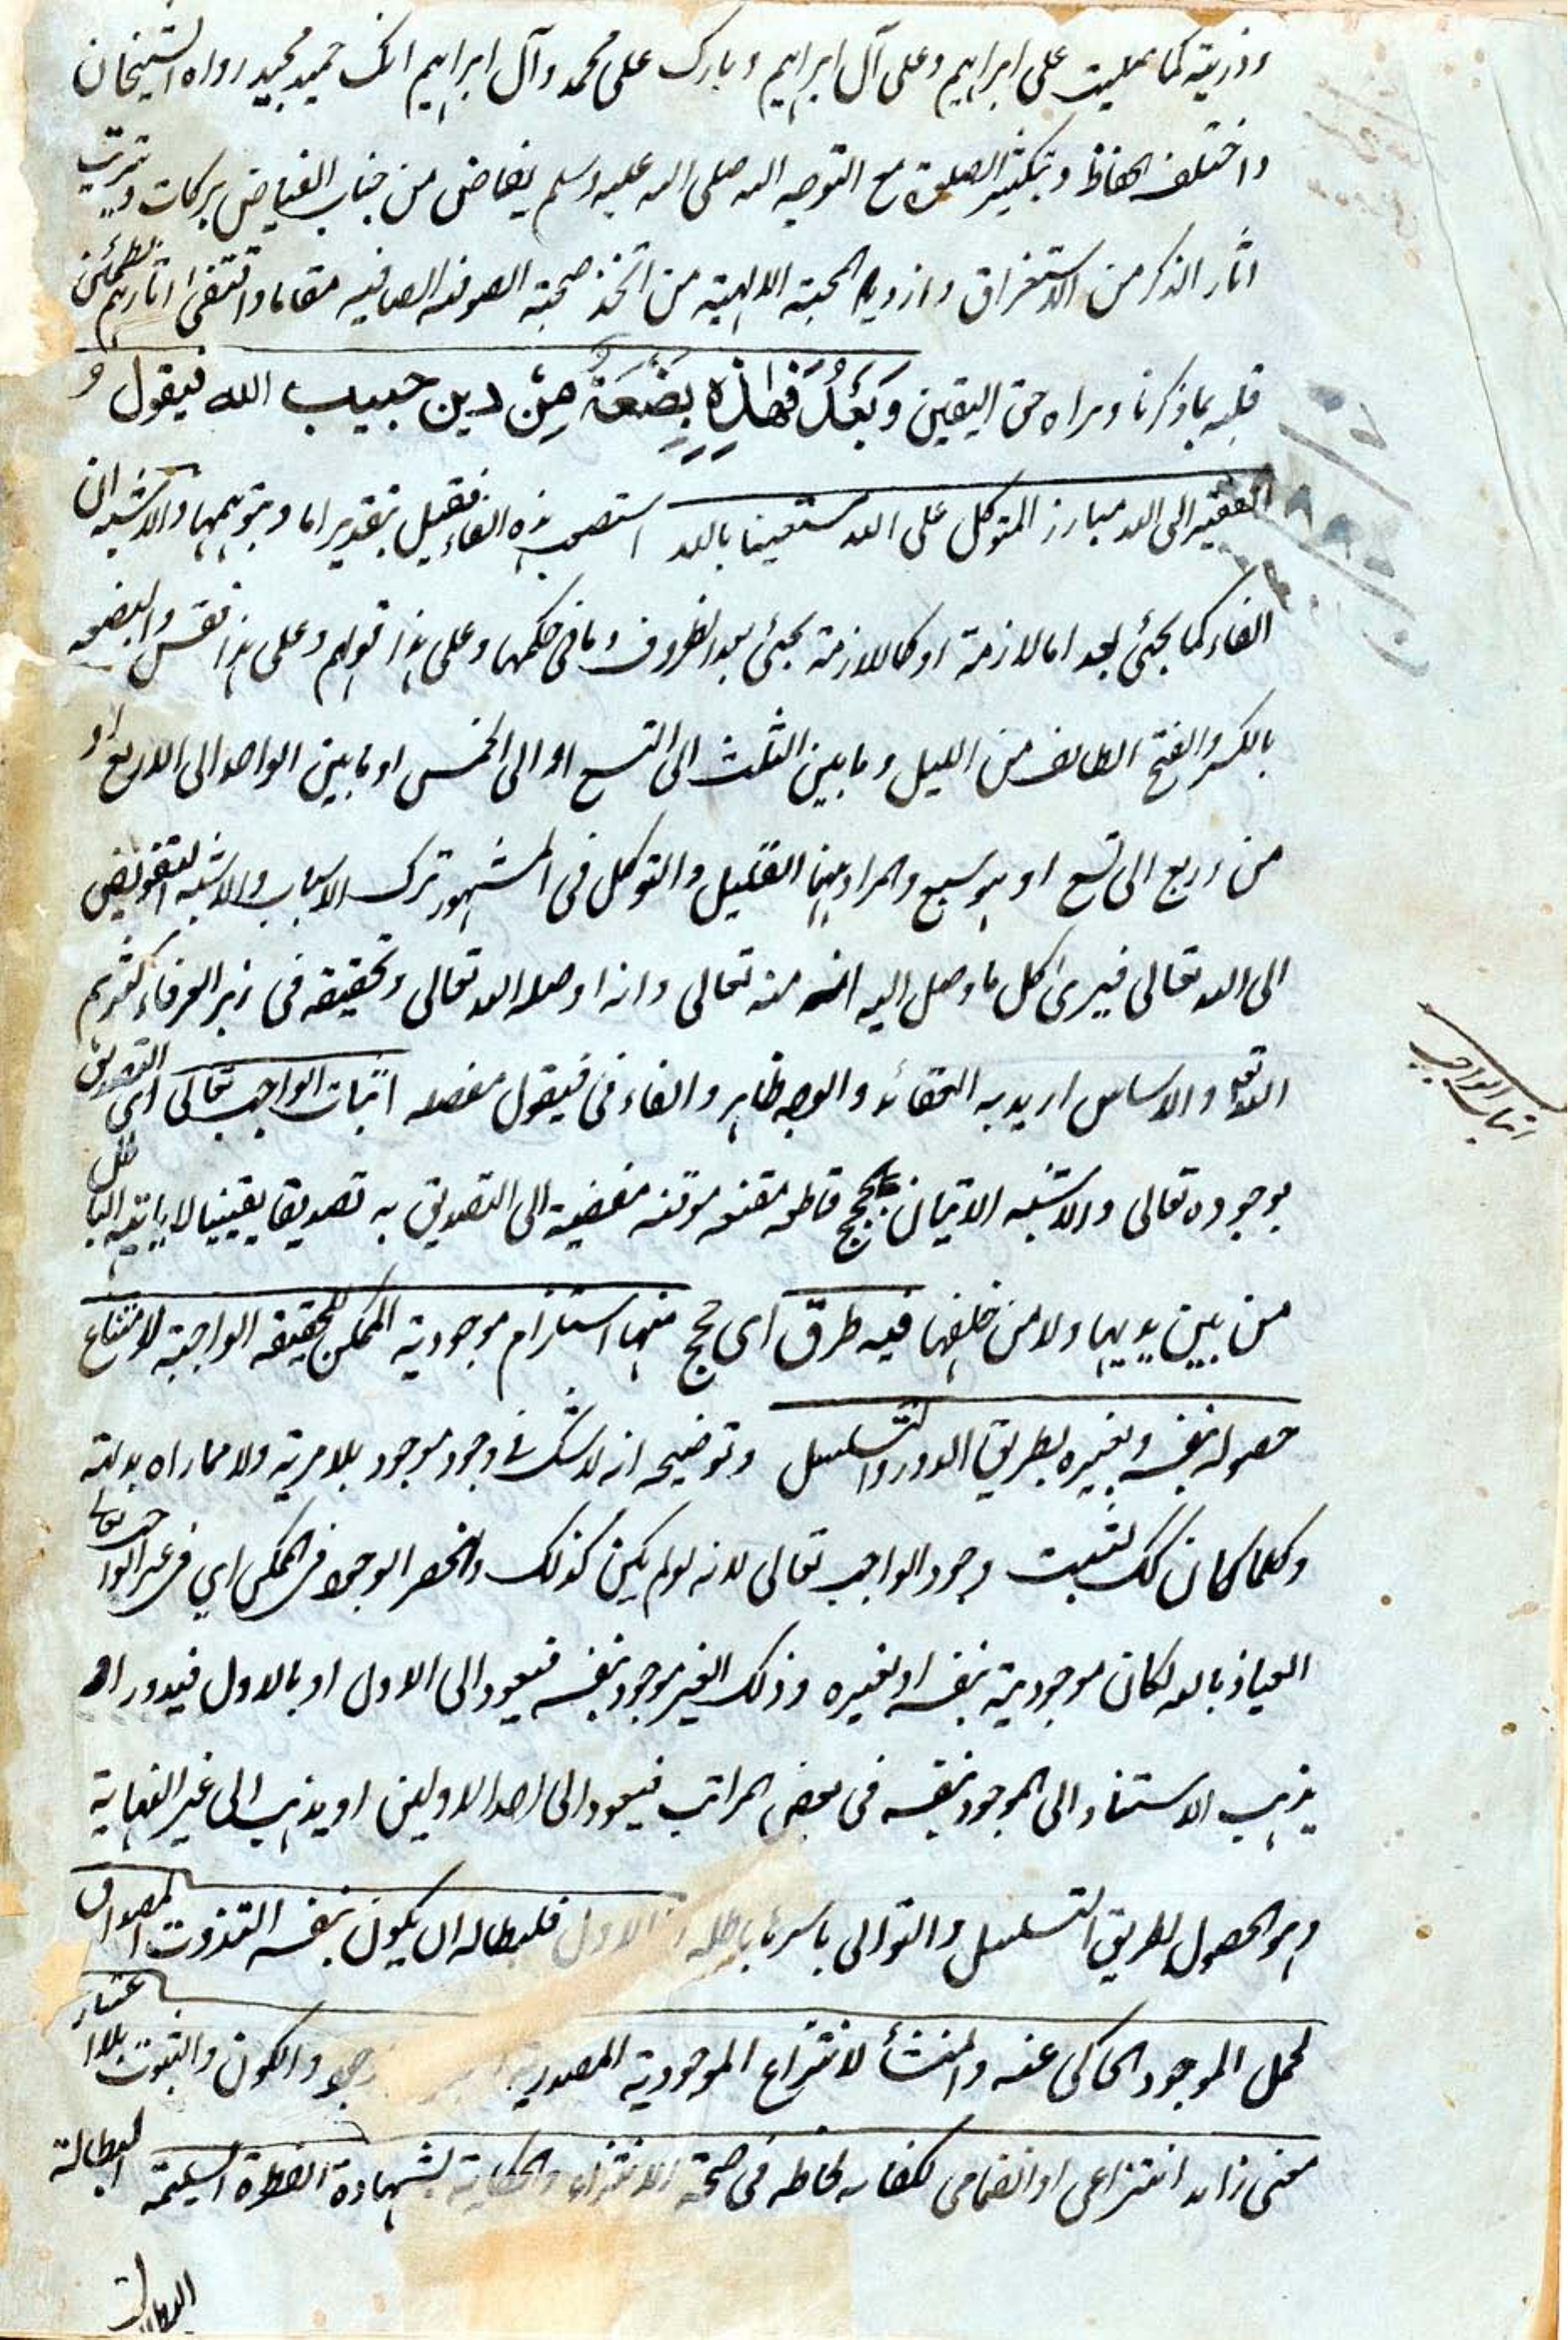 وذريته كما صليت على ابراهيم وعلى آل ابراهيم وبارك على محمد وآل ابراهيم انك حميد مجيد رواه الشيخان
واختلف الحفاظ وبتكثير الصلوة مع التوجه اليه صلى الله عليه وسلم يفاض من جناب الفياض بركات وترتب
اثار الذكر من الاستغراق وازدياد المحبة الالهية من اتخذ صحبة الصوفية الصافية مقاما واقتفى اثارهم يطمئن
قلبه بما ذكرنا ويراه حق اليقين وَبَعْدُ فَهٰذِهٖ بِضْعَةٌ مِنْ دين حبيب الله فيقول
الفقير الى الله مبارز المتوكل على الله مستعينا بالله استصعب هذه الفاء فقيل بتقدير اما وبتوهمها والاشبه ان
الفاء كما يجئ بعد اما لازمة او كاللازمة يجئ بعد الظروف وما في حكمها وعلى هذا قولهم وعلى هذا فقس والبضعة
بالكسر والفتح الطايف من الليل وما بين الثلث الى التسع او الى الخمس او ما بين الواحد الى الاربع او
من اربع الى تسع او هو سبع والمراد ههنا القليل والتوكل في المشهور ترك الاسباب والاشبه التفويض
الى الله تعالى فيرى كل ما وصل اليه انه منه تعالى وانه اوصله الله تعالى وتحقيقه في زبر العرفاء كثرهم
الله تعالى والاساس اريد به العقائد والوجه ظاهر والفاء في فيقول مفصله اثبات الواجب تعالى اى التصديق
بوجوده تعالى والاشبه الاتيان بحجج قاطعه مقنعه موقنه مفضية الى التصديق به تصديقا يقينيا لا ياتيه الباطل
من بين يديها ولا من خلفها فيه طرق اى حجج منها استلزام موجودية الممكن للحقيقة الواجبة لامتناع
حصوله بنفسه وبغيره بطريق الدور والتسلسل وتوضيحه انه لا شك في وجود موجود بلا مرية ولا مماراه بدلته
وكلما كان كك لثبت وجود الواجب تعالى لانه لو لم يكن كذلك وانحصر الوجود في الممكن اي في غير الواجب تعالى
العياذ بالله لكان موجوديته بنفسه او بغيره وذلك الغير موجود بنفسه فيعود الى الاول او بالاول فيدور او
يذهب الاستناد الى الموجود بنفسه في بعض المراتب فيعود الى احد الاولين او يذهب الى غير النهاية
وهو الحصول بطريق التسلسل والتوالى باسرها باطله الاول فلبطاله ان يكون بنفسه التذوت المصداق
لحمل الموجود الحاكى عنه والمنشأ لانتزاع الموجودية المصدرية والكون والثبوت بلا اعتبار
معنى زائد انتزاعى او انضمامى لكفايه لحاظه في صحة الانتزاع والحكاية بشهادة الفطرة السليمة البطالة
البطالة
اثبات الواجب